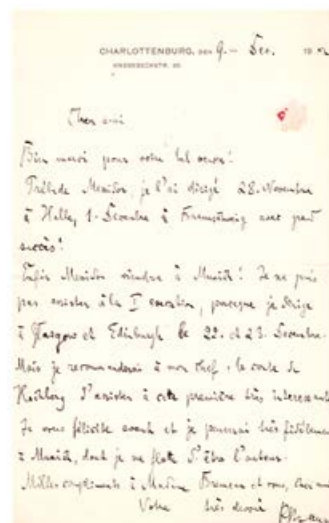 CHARLOTTENBURG, DEN 9. Dec. 190
KNESEBECKSTR. 30.
Cher ami
Bien merci pour votre bel envoi!
de Messidor, je l'ai dirigé 28. Novembre
à Halle, 1. Decembre à avec
succès!
Enfin Messidor viendra à Munich! Je ne puis
pas assister à la I execution, parceque je dirige
à Glasgow et Edinburgh le 22. et 23. Decembre.
Mais je recommanderai à mon chef, le comte de
Hochberg d'assister à cette première très interessante
Je vous félicite avant et je penserai très fidèlement
à Munich, dont je me flatte d'être l'auteur.
Milles compliments à Madame Bruneau et vous, cher ami
Votre très dévoué